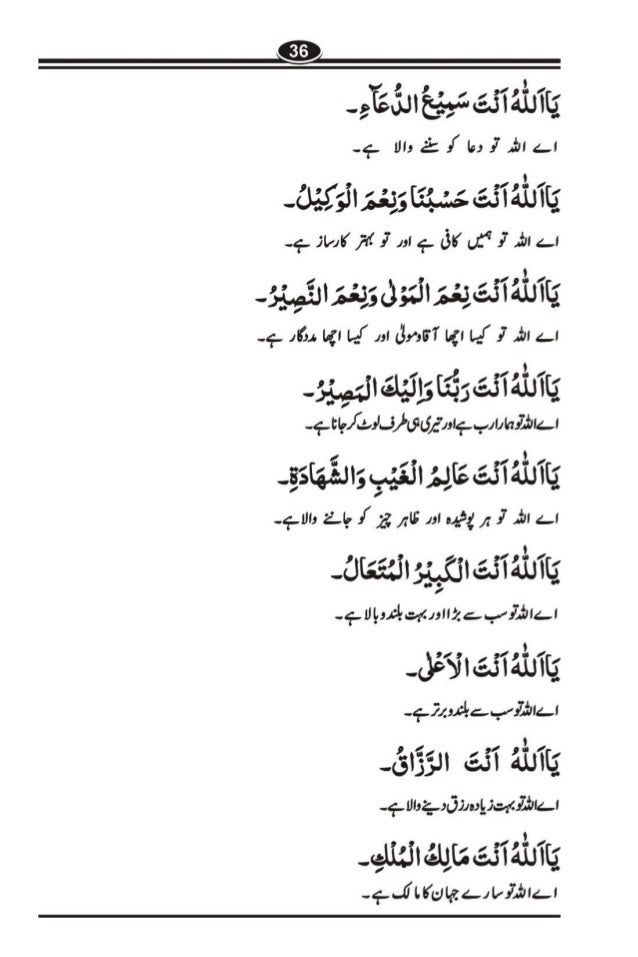 36
یَااَللّٰهُ اَنْتَ سَمِیْعُ الدُّعَآءِ۔
اے اللہ تو دعا کو سننے والا ہے۔
یَااَللّٰهُ اَنْتَ حَسْبُنَا وَنِعْمَ الْوَكِیْلُ۔
اے اللہ تو ہمیں کافی ہے اور تو بہتر کارساز ہے۔
یَااَللّٰهُ اَنْتَ نِعْمَ الْمَوْلٰی وَنِعْمَ النَّصِیْرُ۔
اے اللہ تو کیسا اچھا آقا ومولیٰ اور کیسا اچھا مددگار ہے۔
یَااَللّٰهُ اَنْتَ رَبُّنَا وَاِلَیْكَ الْمَصِیْرُ۔
اے اللہ تو ہمارا رب ہے اور تیری ہی طرف لوٹ کر جانا ہے۔
یَااَللّٰهُ اَنْتَ عَالِمُ الْغَیْبِ وَالشَّهَادَةِ۔
اے اللہ تو ہر پوشیدہ اور ظاہر چیز کو جاننے والا ہے۔
یَااَللّٰهُ اَنْتَ الْكَبِیْرُ الْمُتَعَالُ۔
اے اللہ تو سب سے بڑا اور بہت بلند و بالا ہے۔
یَااَللّٰهُ اَنْتَ الْاَعْلٰی۔
اے اللہ تو سب سے بلند و برتر ہے۔
یَااَللّٰهُ اَنْتَ الرَّزَّاقُ۔
اے اللہ تو بہت زیادہ رزق دینے والا ہے۔
یَااَللّٰهُ اَنْتَ مَالِكُ الْمُلْكِ۔
اے اللہ تو سارے جہان کا مالک ہے۔